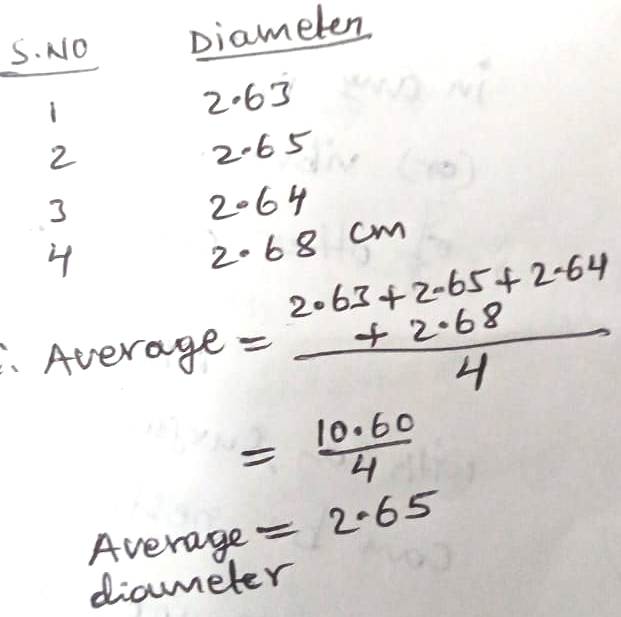 S.NO Diameter
1 2.63
2 2.65
3 2.64
4 2.68 cm
∴ Average = 2.63 + 2.65 + 2.64
+ 2.68
4
= 10.60
4
Average = 2.65
diameter